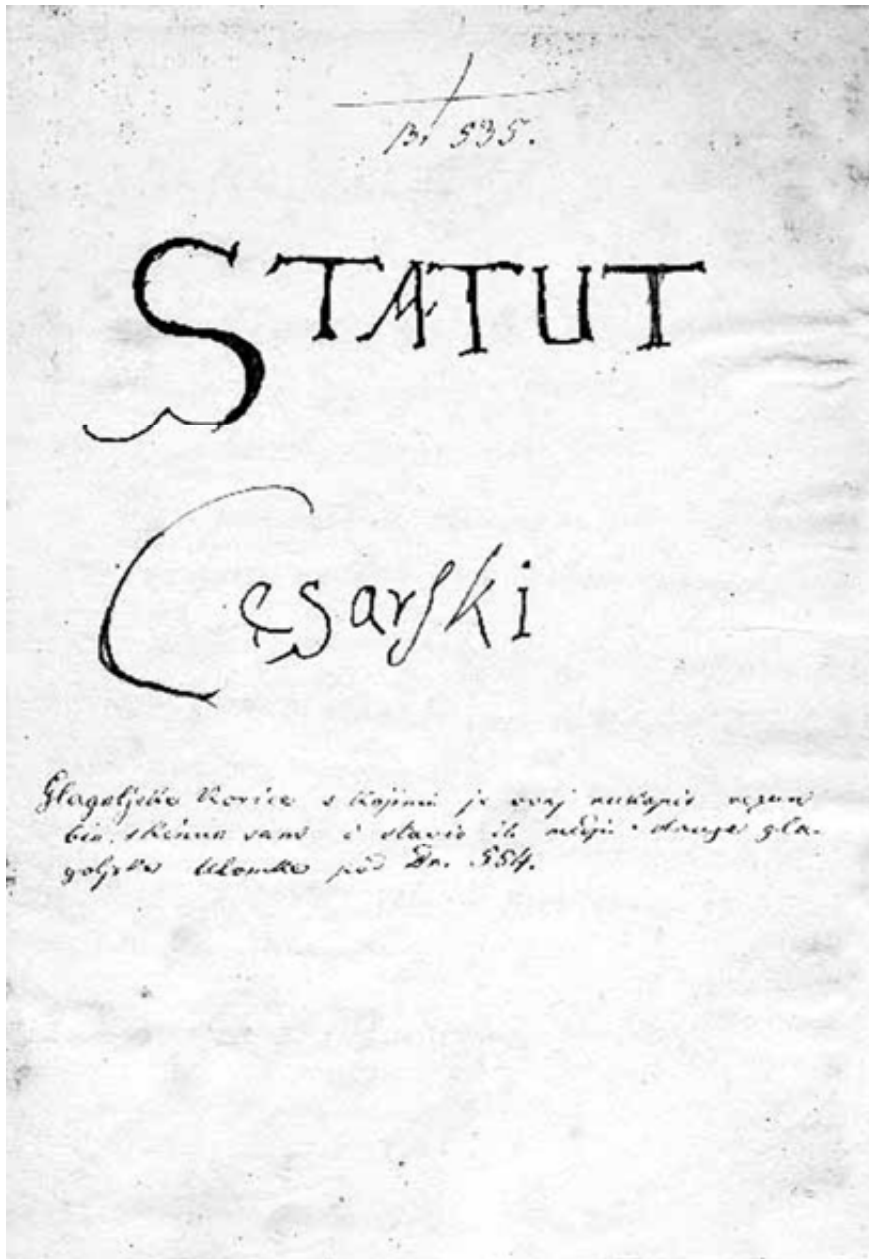 Br 535.
STATUT
Cesarski
Glagoljske korice s kojimi je ovaj rukopis vezan
bio, skinun sam i stavio ih među druge gla-
goljske ulomke pod Br. 554.